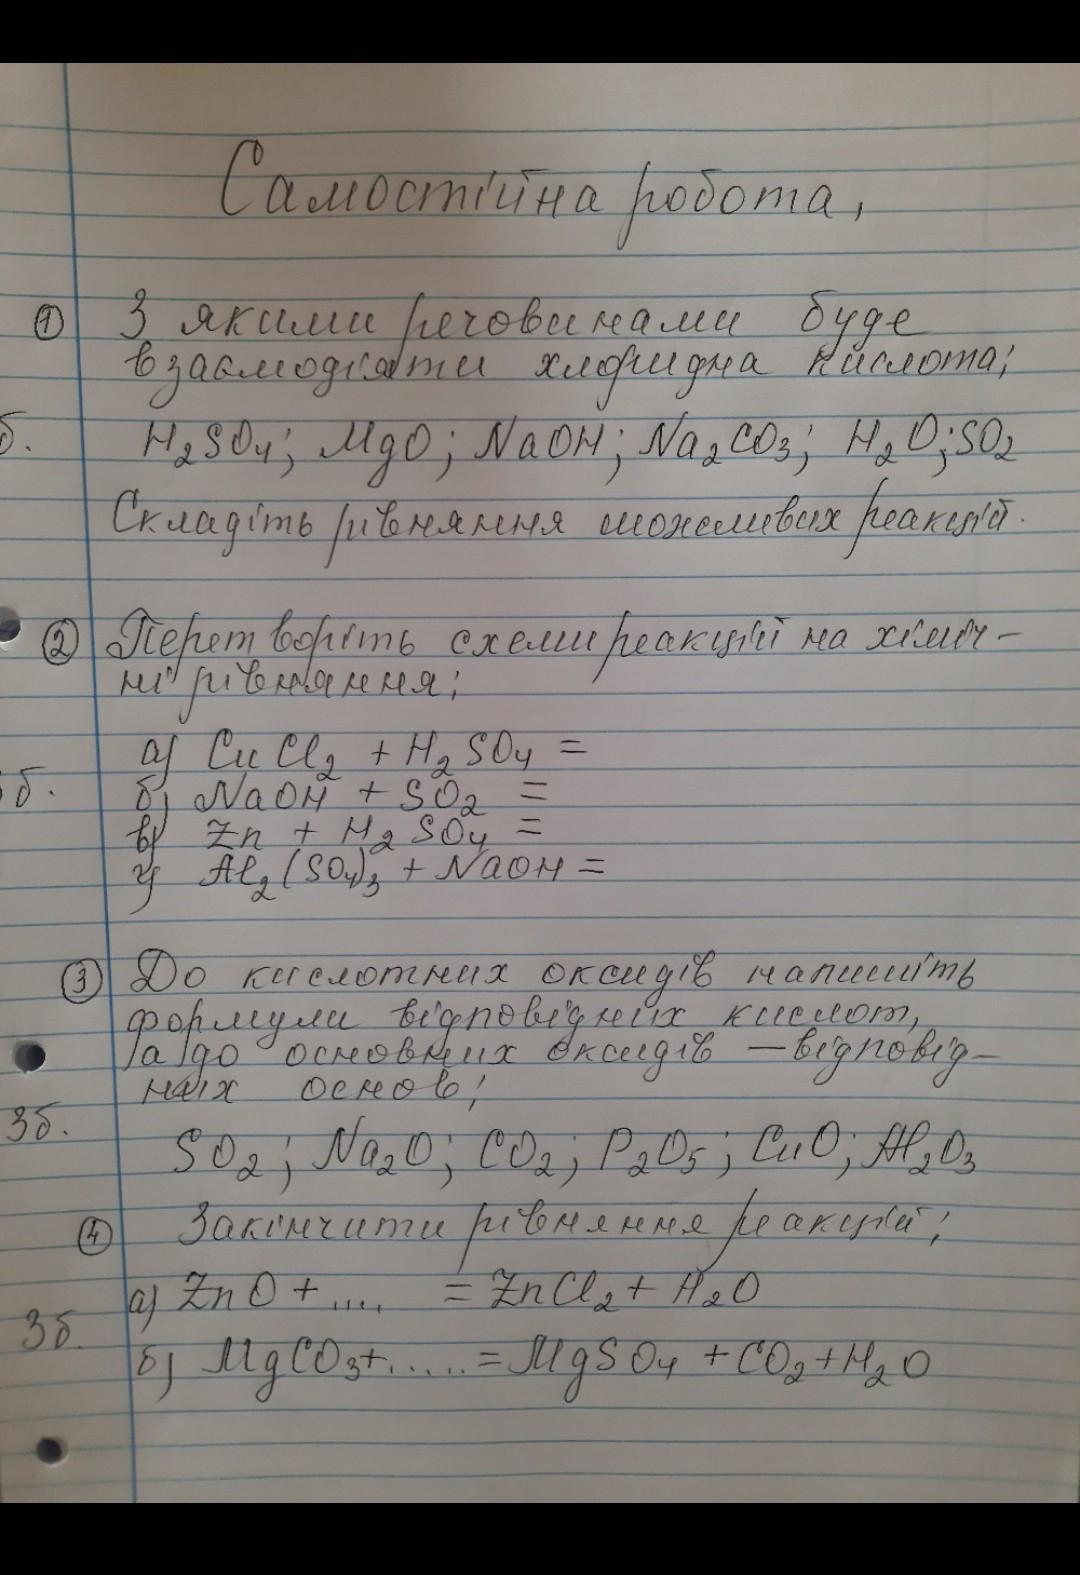 Самостійна робота,
① З якими речовинами буде
взаємодіяти хлоридна кислота;
б. H₂SO₄; MgO; NaOH; Na₂CO₃; H₂O; SO₂
Складіть рівняння можливих реакцій.
② Перетворіть схеми реакцій на хіміч-
ні рівняння;
а) CuCl₂ + H₂SO₄ =
б. б) NaOH + SO₂ =
в) Zn + H₂SO₄ =
г) Al₂(SO₄)₃ + NaOH =
③ До кислотних оксидів напишіть
формули відповідних кислот,
а до основних оксидів — відповід-
них основ;
3б. SO₂; Na₂O; CO₂; P₂O₅; CuO; Al₂O₃
④ Закінчити рівняння реакцій;
а) ZnO + .... = ZnCl₂ + H₂O
3б. б) MgCO₃ + ...... = MgSO₄ + CO₂ + H₂O